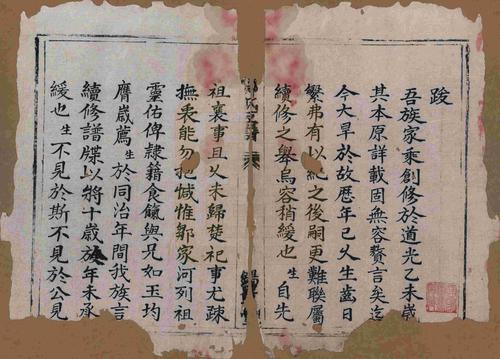 跋
吾族家乘創修於道光乙未歲
其本原詳載固無容贅言矣迄
今大旱於故歷年已久生齒日
繁弗有以紀之後嗣更難聯屬
續修之舉烏容稍緩也生自先
祖襄事且久未歸楚祀事尤疎
撫衷能勿抱慽惟鄒家河列祖
靈佑俾隸籍食餼與兄如玉均
膺歲薦生於同治年間我族言
續修譜牒以將十歲於年未承
緩也生不見於斯不見於公見